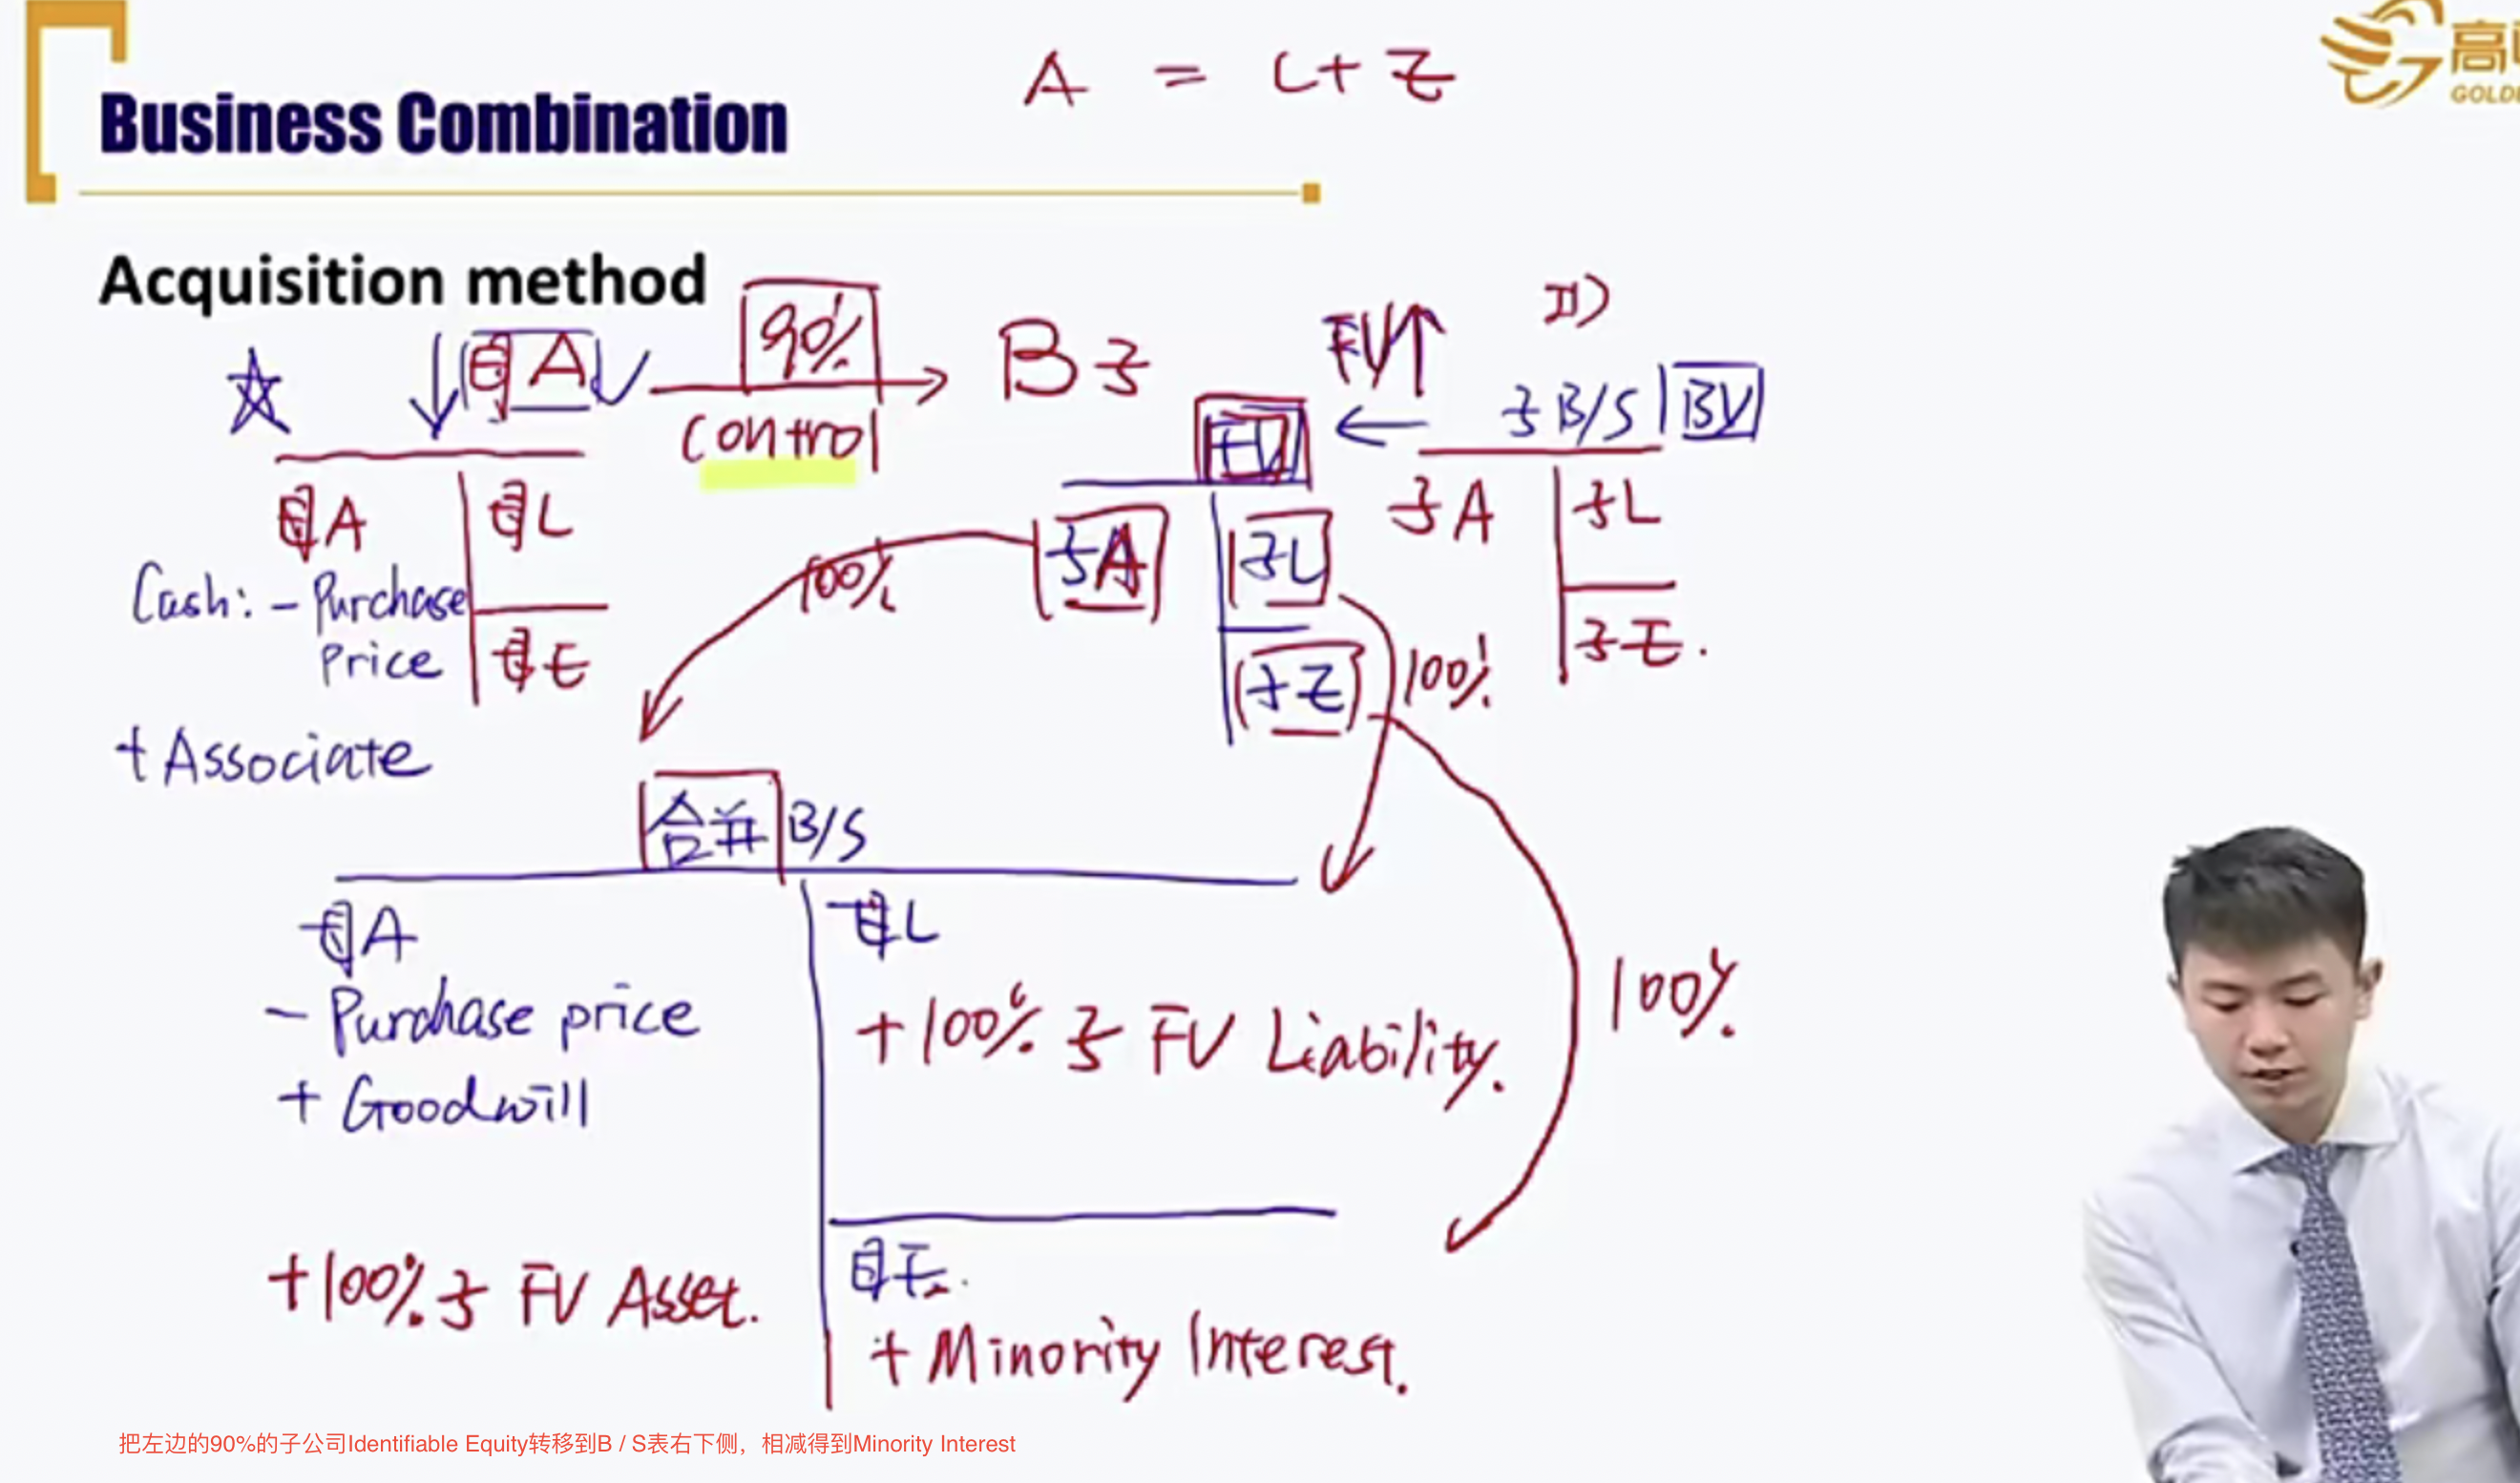 A = L + E
高
GOLD
Business Combination
Acquisition method
母A
90%
control
B子
FV↑
II)
子B/S
BV
FV
母A
母L
母E
Cash: - Purchase
Price
+ Associate
子A
子L
子E
子A
子L
子E.
100%
100%
100%
合并 B/S
母A
- Purchase price
+ Goodwill
+100% 子 FV Asset.
母L
+100% 子 FV Liability.
母E.
+ Minority Interest.
把左边的90%的子公司Identifiable Equity转移到B / S表右下侧，相减得到Minority Interest